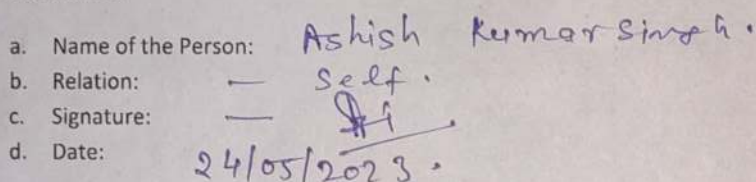 a. Name of the Person: Ashish Kumar Singh.
b. Relation: — Self.
c. Signature: —
d. Date: 24/05/2023.